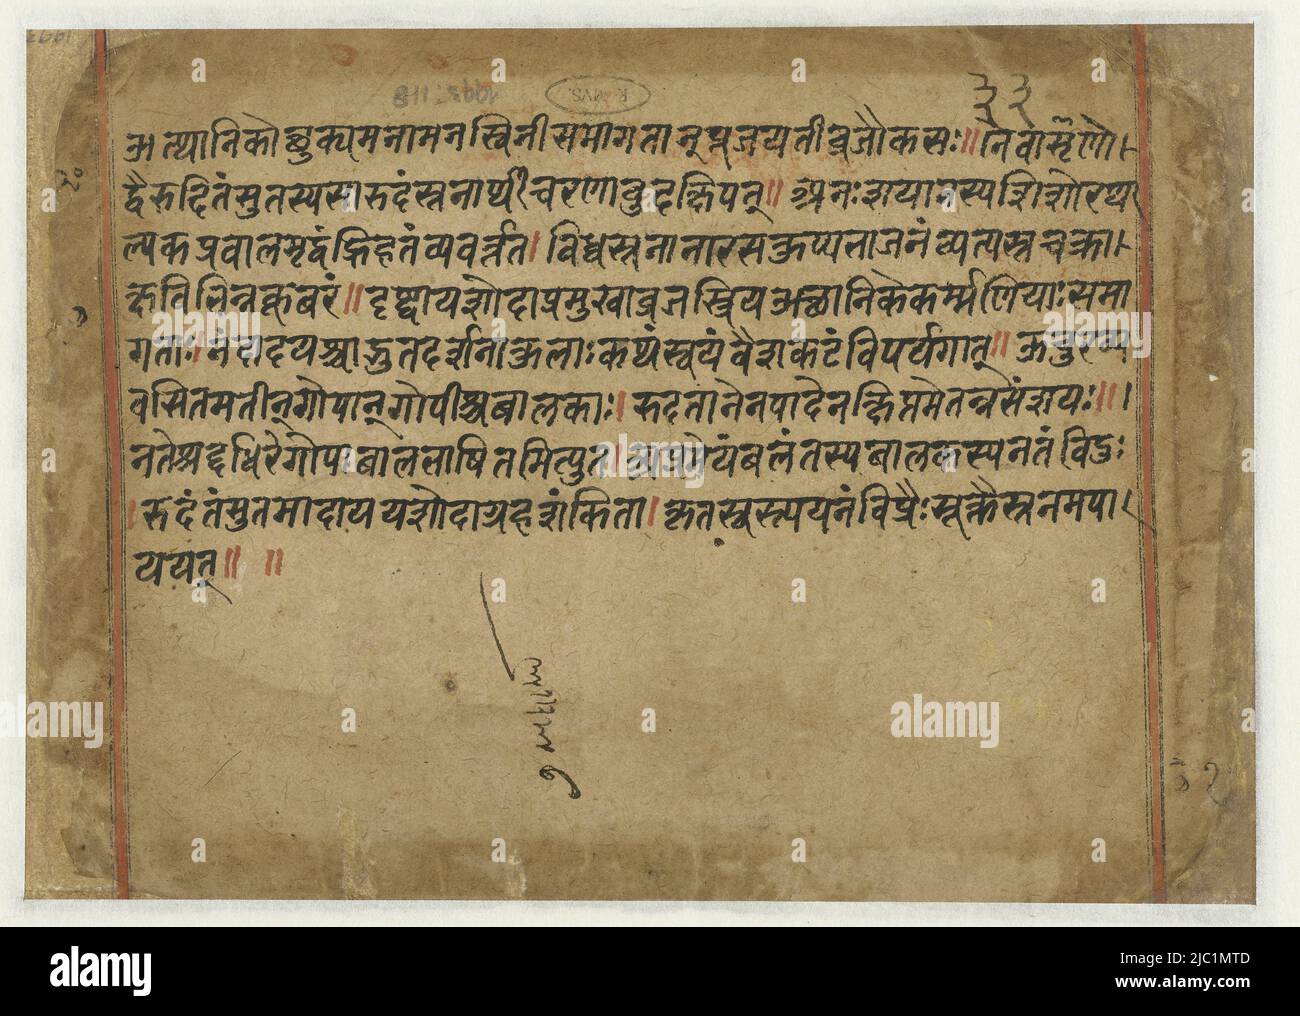 ३३
अत्थानिकौत्सुक्यमनामनस्विनीसमागतान्पूजयतीव्रजौकसः॥निवाशृणो।
द्वैरुदितंसुतस्यसारुदंस्तनार्थ्थीचरणावुदक्षिपत्॥अनःशयानस्यशिशोरथा
ल्पकप्रवालमृद्वंघ्रिहतंव्यवर्त्तत।विध्वस्तनानारसकुप्यनाजनंव्यत्यस्तचक्रा।
क्षविभिन्नकूबरं॥दृष्ट्वायशोदाप्रमुखाव्रजस्त्रियअच्छानिकेकर्म्मणियाःसमा
गताः।नंदादयश्चाद्भुतदर्शनाकुलाःकथंस्वयंवैशकटंविपर्यगात्॥ऊचुरव्य
वसितमतीन्गोपान्गोपीश्चबालकाः।रुदतानेनपादेनक्षिप्तमेतन्नसंशयः॥।
नतेश्रद्दधिरेगोपाबालभाषितमित्युत।अप्रमेयंबलंतस्यबालकस्यनतंविदुः
।रुदंतंसुतमादाययशोदाग्रहशंकिता।कृतस्वस्त्ययनंविप्रैःसूक्तैस्तनमपा।
ययत्॥ ॥
३२
R.MVS.
alamy
Image ID: 2JC1MTD
www.alamy.com